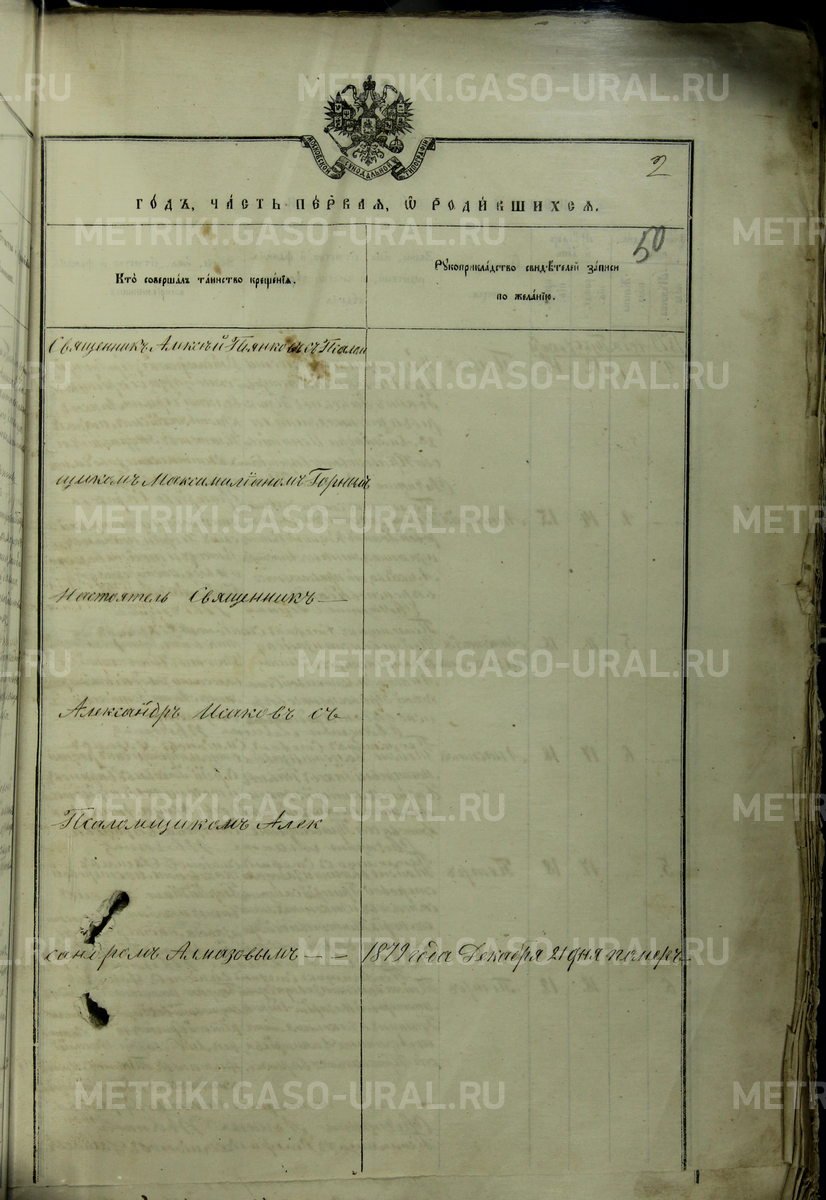 METRIKI.GASO-URAL.RU
МОСКОВСКОЙ СѴНОДАЛЬНОЙ ТИПОГРАФІИ
2
ГО́ДЪ, ЧА́СТЬ ПЕ́РВАЯ, Ѡ РОДИ́ВШИХСЯ.
50
Кто̀ соверша́лъ та́инство креще́нїѧ.
Рꙋкоприкла́дство свидѣ́телей за́писи
по жела́нїю.
Священникъ Алексѣй Тянковъ съ Псалом
щикомъ Максимилїаномъ Горнымъ
Настоятель Священникъ —
Александръ Исаковъ съ
Псаломщикомъ Алек
сандромъ Алмазовымъ — —
1879 года Декабря 21 дня померъ